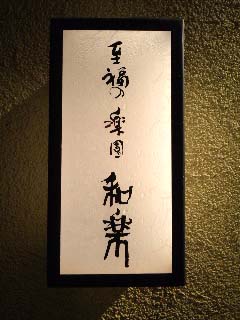 至福の楽園 和楽